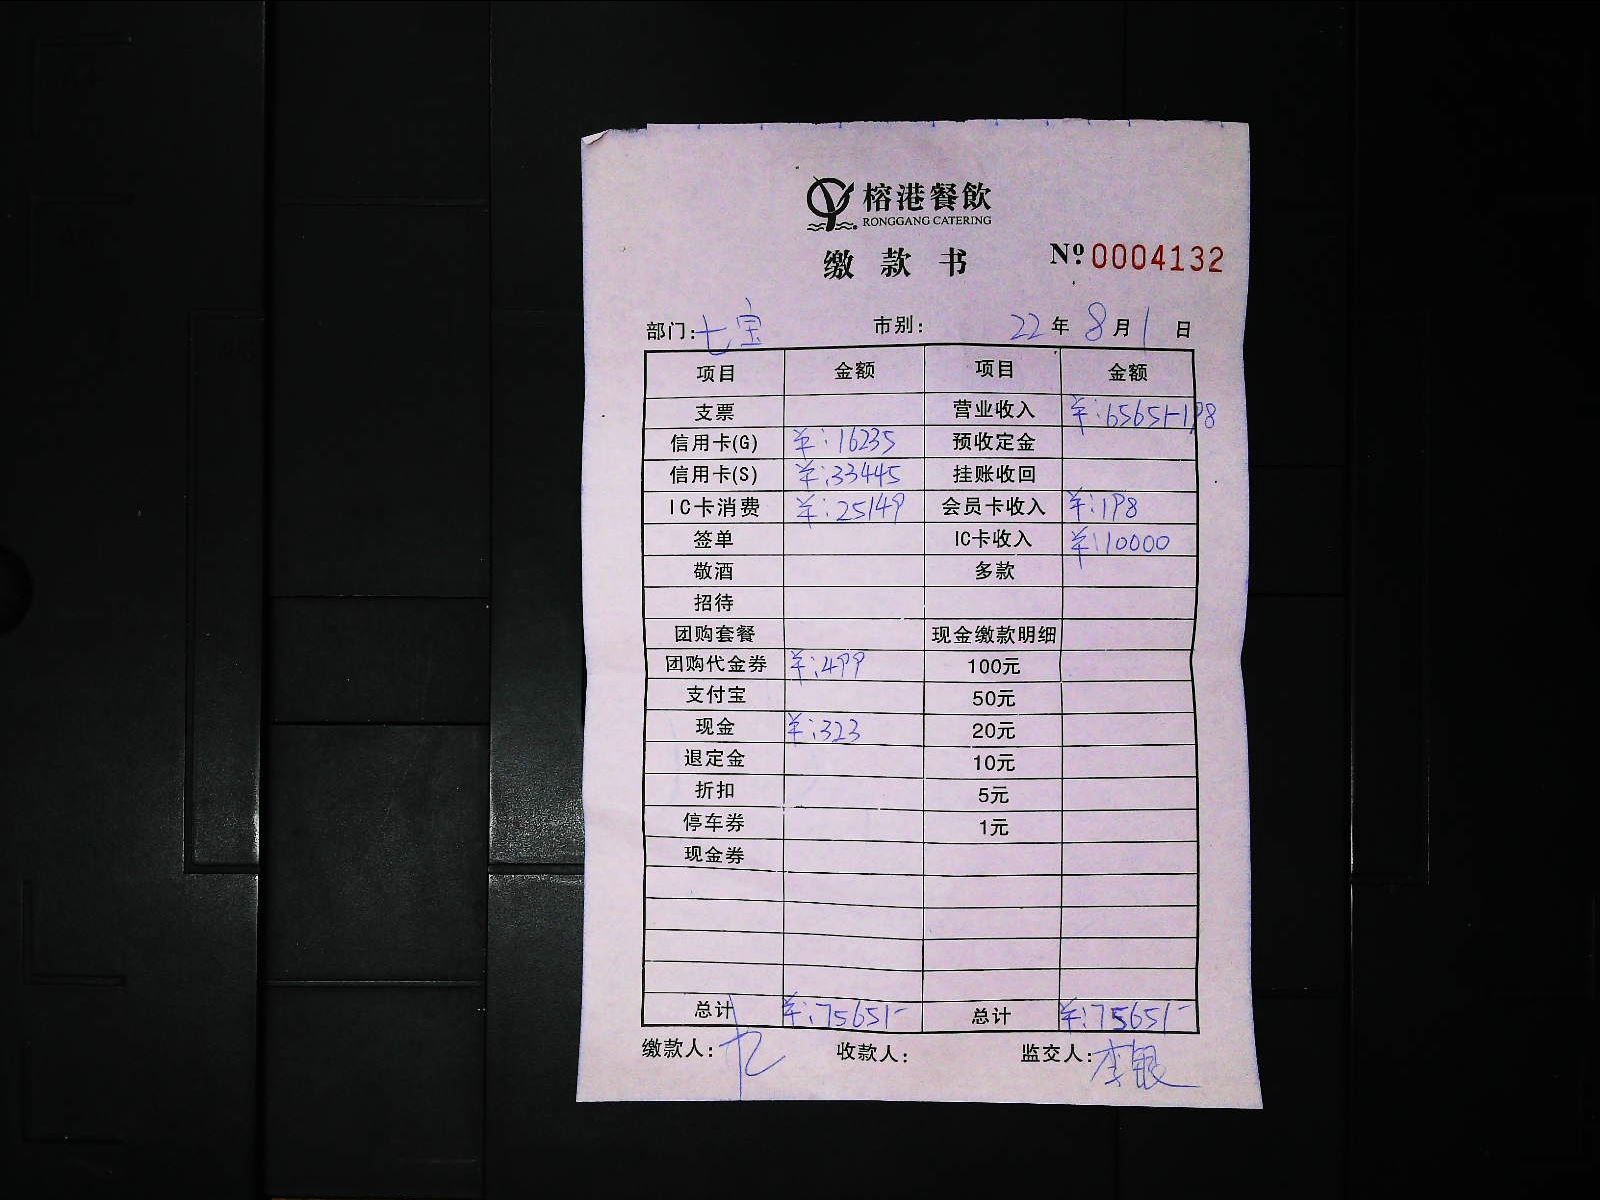 榕港餐飲
RONGGANG CATERING
缴款书 Nº 0004132
部门：七宝 市别： 22年8月1日
项目 金额 项目 金额
支票 营业收入 ¥:65651-198
信用卡(G) ¥:16235 预收定金
信用卡(S) ¥:33445 挂账收回
IC卡消费 ¥:25149 会员卡收入 ¥:198
签单 IC卡收入 ¥:10000
敬酒 多款
招待
团购套餐 现金缴款明细
团购代金券 ¥:499 100元
支付宝 50元
现金 ¥:323 20元
退定金 10元
折扣 5元
停车券 1元
现金券
总计 ¥:75651- 总计 ¥:75651-
缴款人： 收款人： 监交人：李银